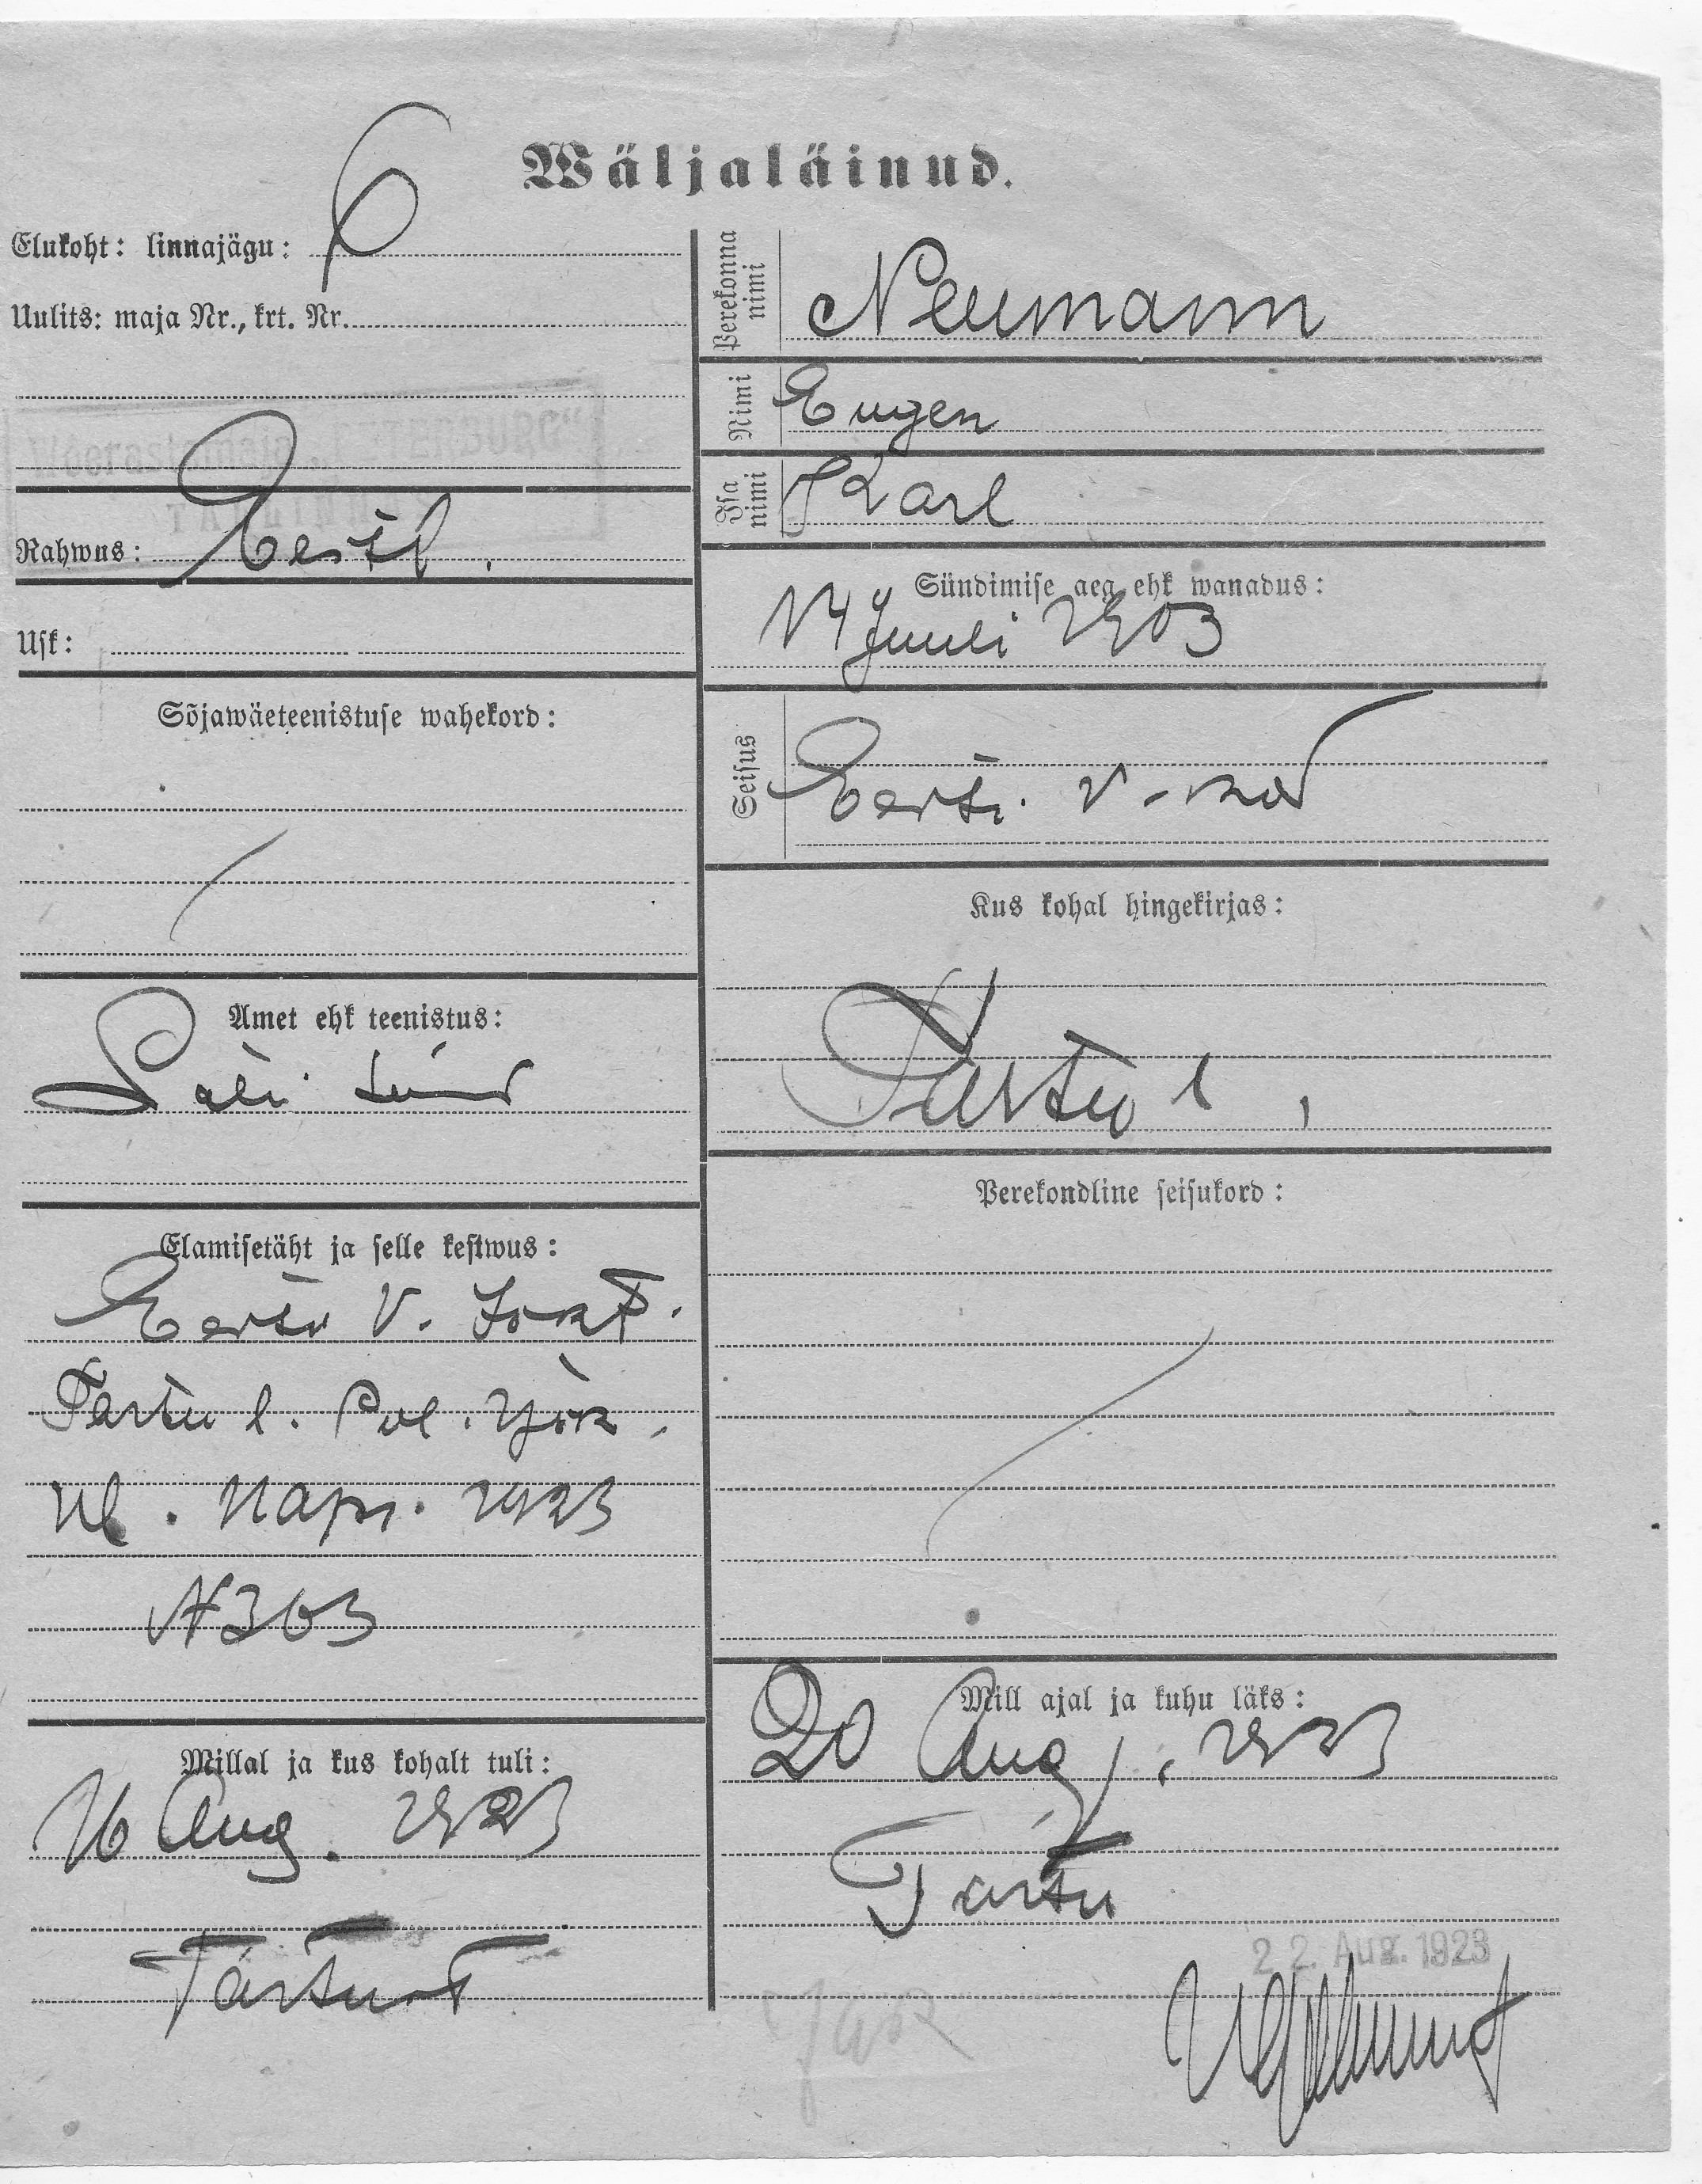 Wäljaläinud.
Elukoht: linnajägu: 6
Uulits: maja Nr., krt. Nr.
Wõerastemaja „PETERBURG“
TALLINN
Rahwus: Eestl.
Usk:
Sõjawäeteenistuse wahekord:
Amet ehk teenistus:
Elamisetäht ja selle kestwus:
Eesti V.
Tartu l. Pol.
1923
N 303
Millal ja kus kohalt tuli:
16 Aug. 1923
Tartust
Perekonna nimi
Neumann
Nimi
Eugen
Isa nimi
Karl
Sündimise aeg ehk wanadus:
14 Juuli 1903
Seisus
Eesti v-kod
Kus kohal hingekirjas:
Tartu l,
Perekondline seisukord:
Mill ajal ja kuhu läks:
20 Aug. 1923
Tartu
22. Aug. 1923